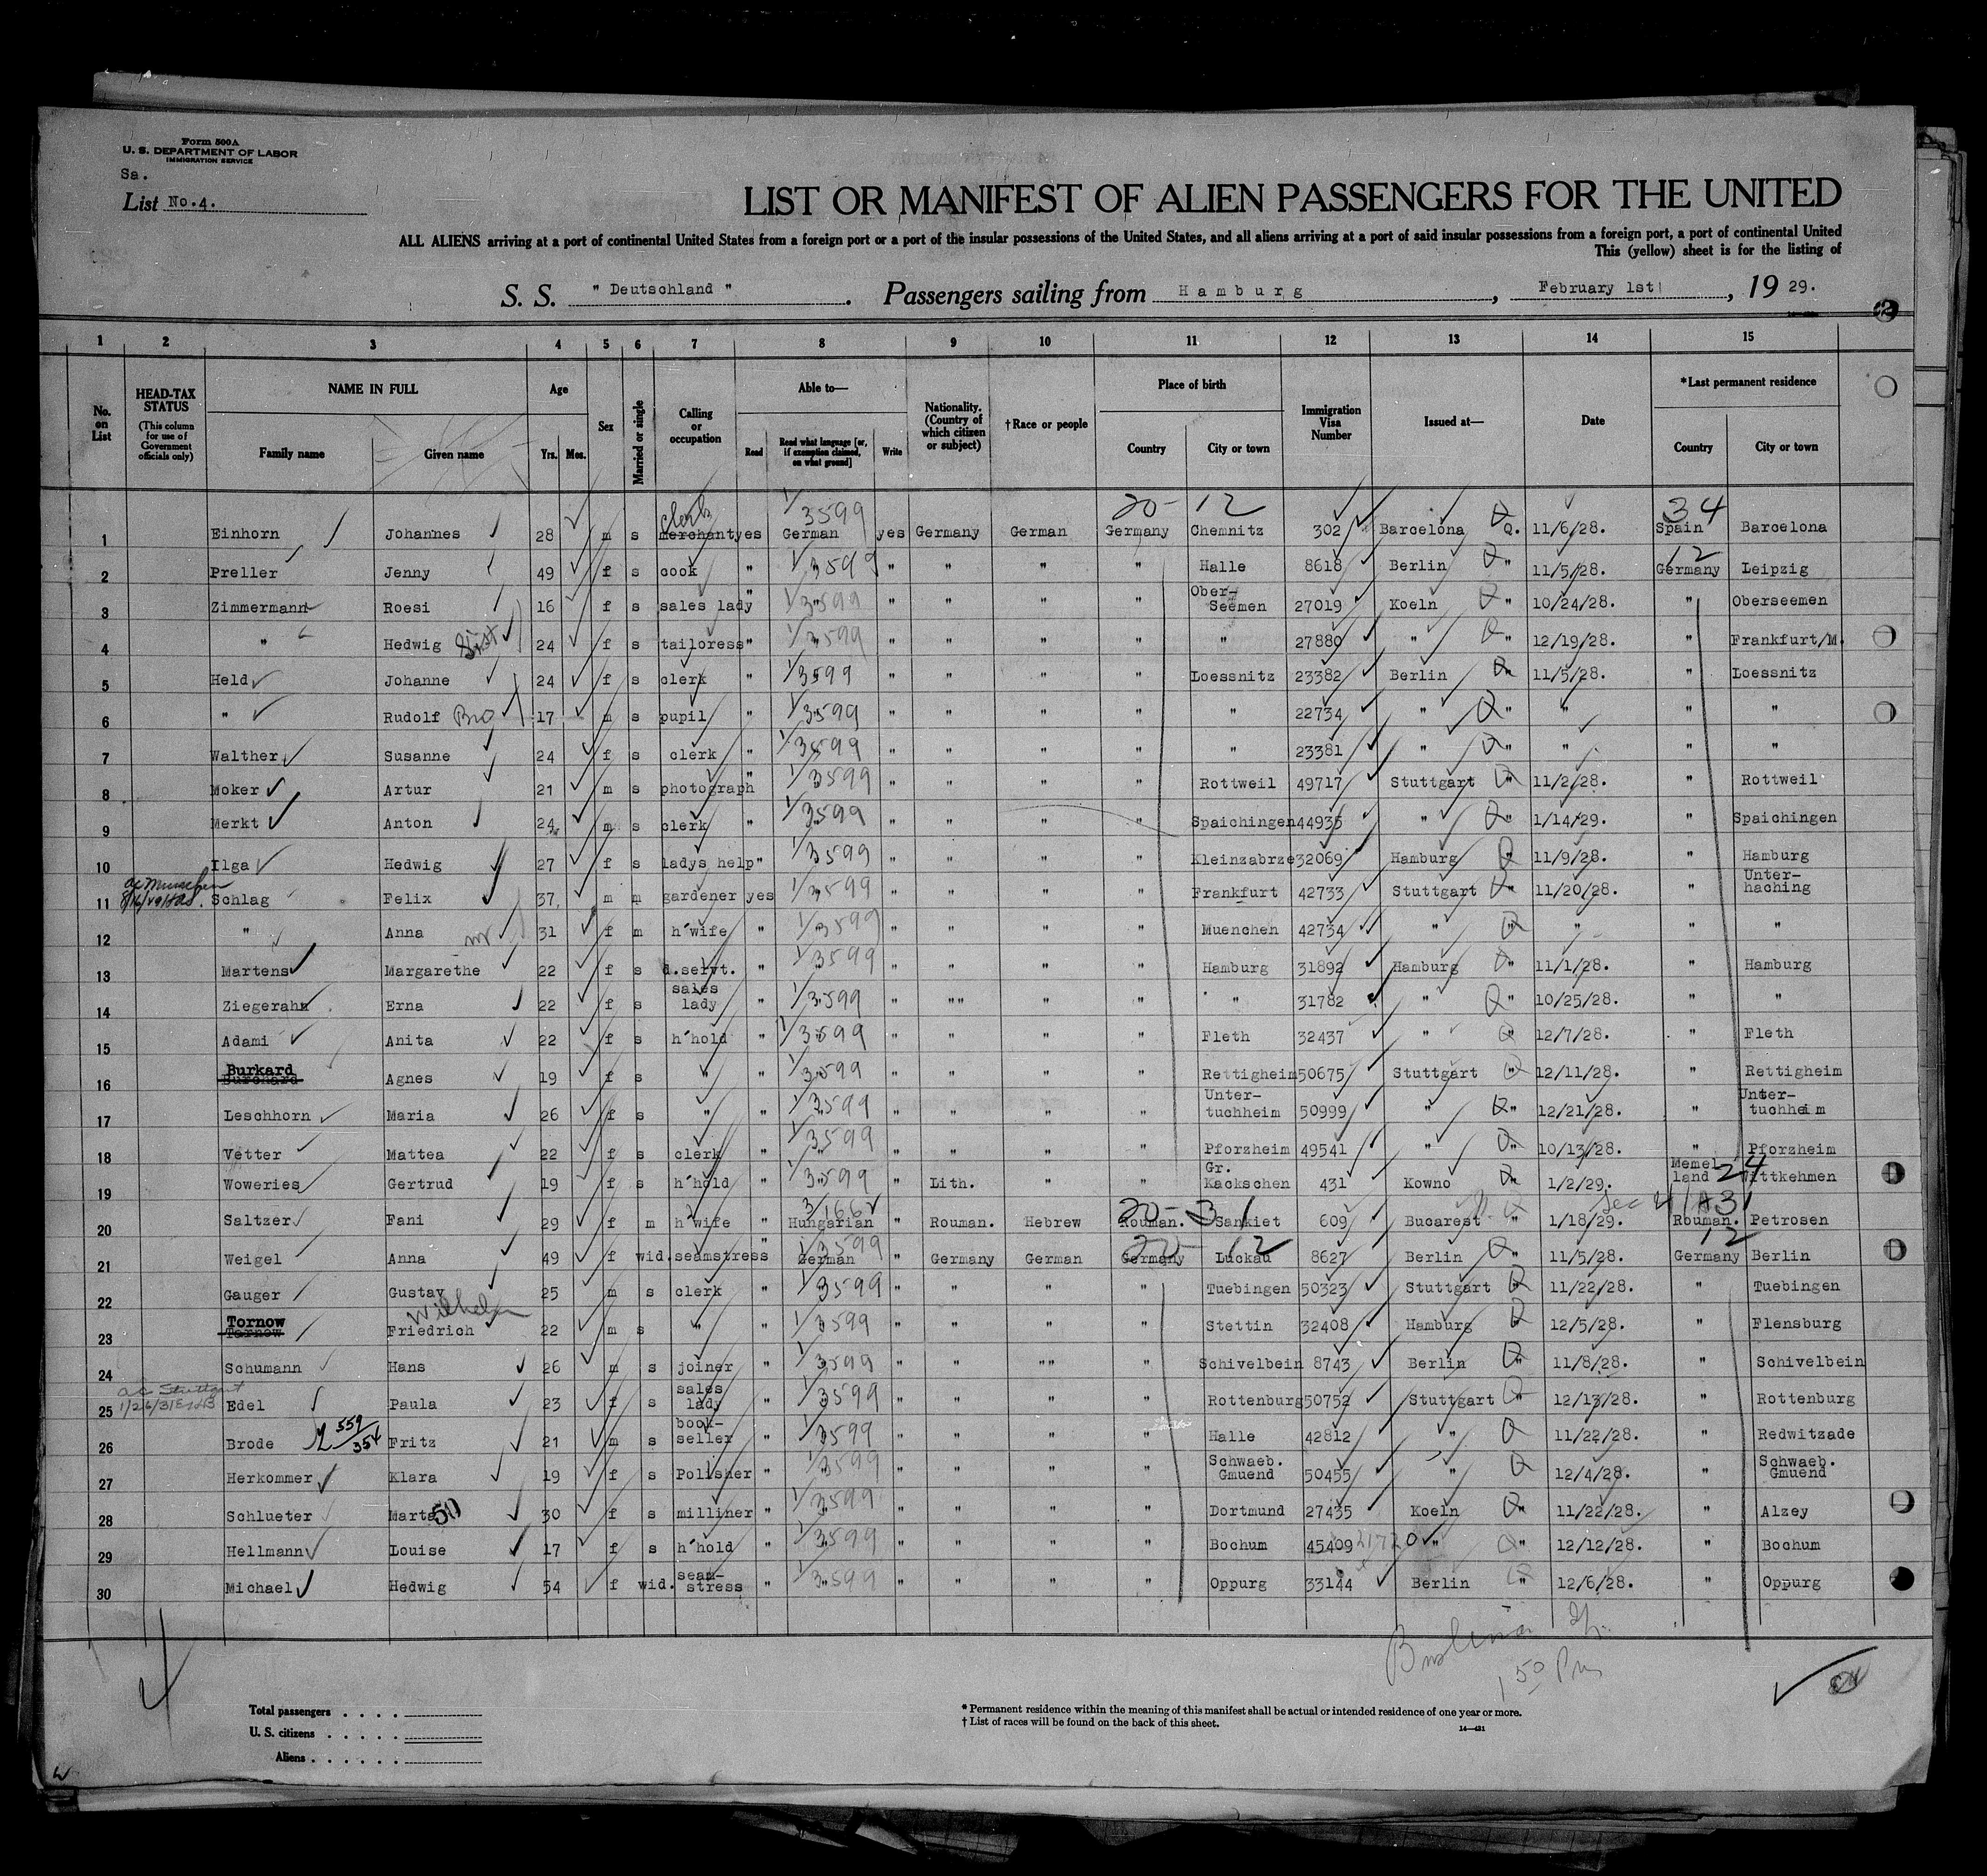 Form 500A
U. S. DEPARTMENT OF LABOR
IMMIGRATION SERVICE
Sa.
List No.4.
LIST OR MANIFEST OF ALIEN PASSENGERS FOR THE UNITED
ALL ALIENS arriving at a port of continental United States from a foreign port or a port of the insular possessions of the United States, and all aliens arriving at a port of said insular possessions from a foreign port, a port of continental United
This (yellow) sheet is for the listing of
S. S. " Deutschland " . Passengers sailing from Hamburg , February 1st , 19 29.
1 2 3 4 5 6 7 8 9 10 11 12 13 14 15
No. on List HEAD-TAX STATUS (This column for use of Government officials only) NAME IN FULL Family name Given name Age Yrs. Mos. Sex Married or single Calling or occupation Able to— Read Read what language [or, if exemption claimed, on what ground] Write Nationality. (Country of which citizen or subject) †Race or people Place of birth Country City or town Immigration Visa Number Issued at— Date *Last permanent residence Country City or town
20- 12 34
clerk 1/3599
1 Einhorn Johannes 28 m s merchant yes German yes Germany German Germany Chemnitz 302 Barcelona Q. 11/6/28. Spain Barcelona
12
2 Preller Jenny 49 f s cook " 1/3599 " " " " Halle 8618 Berlin " 11/5/28. Germany Leipzig
3 Zimmermann Roesi 16 f s sales lady " 1/3599 " " " " Ober-Seemen 27019 Koeln " 10/24/28. " Oberseemen
4 " Hedwig Sist 24 f s tailoress " 1/3599 " " " " " 27880 " " 12/19/28. " Frankfurt/M.
5 Held Johanne 24 f s clerk " 1/3599 " " " " Loessnitz 23382 Berlin " 11/5/28. " Loessnitz
6 " Rudolf Bro 17 m s pupil " 1/3599 " " " " " 22734 " " " " "
7 Walther Susanne 24 f s clerk " 1/3599 " " " " " 23381 " " " " "
8 Moker Artur 21 m s photograph " 1/3599 " " " " Rottweil 49717 Stuttgart " 11/2/28. " Rottweil
9 Merkt Anton 24 m s clerk " 1/3599 " " " " Spaichingen 44935 " " 1/14/29. " Spaichingen
10 Ilga Hedwig 27 f s ladys help " 1/3599 " " " " Kleinzabrze 32069 Hamburg " 11/9/28. " Hamburg
11 Schlag Felix 37 m m gardener yes 1/3599 " " " " Frankfurt 42733 Stuttgart " 11/20/28. " Unter-haching
12 " Anna 31 f m h'wife " 1/3599 " " " " Muenchen 42734 " " " " "
13 Martens Margarethe 22 f s d.servt. " 1/3599 " " " " Hamburg 31892 Hamburg " 11/1/28. " Hamburg
14 Ziegerahn Erna 22 f s sales lady " 1/3599 " "" " " " 31782 " " 10/25/28. " "
15 Adami Anita 22 f s h'hold " 1/3599 " " " " Fleth 32437 " " 12/7/28. " Fleth
Burkard
16 Burchard Agnes 19 f s " " 1/3599 " " " " Rettigheim 50675 Stuttgart " 12/11/28. " Rettigheim
17 Leschhorn Maria 26 f s " " 1/3599 " " " " Unter-tuchheim 50999 " " 12/21/28. " Unter-tuchheim
18 Vetter Mattea 22 f s clerk " 1/3599 " " " " Pforzheim 49541 " " 10/13/28. " Pforzheim
24
19 Woweries Gertrud 19 f s h'hold " 1/3599 " Lith. " " Gr. Kackschen 431 Kowno " 1/2/29. Memel land Wittkehmen
3/1662 20-31 Sec 4/A 31
20 Saltzer Fani 29 f m h'wife " Hungarian " Rouman. Hebrew Rouman. Sankiet 609 Bucarest " 1/18/29. Rouman. Petrosen
1/3599 20- 12 12
21 Weigel Anna 49 f wid. seamstress " German " Germany German Germany Luckau 8627 Berlin " 11/5/28. Germany Berlin
22 Gauger Gustav 25 m s clerk " 1/3599 " " " " Tuebingen 50323 Stuttgart " 11/22/28. " Tuebingen
Tornow Wilhelm
23 Tarnow Friedrich 22 m s " " 1/3599 " " " " Stettin 32408 Hamburg " 12/5/28. " Flensburg
24 Schumann Hans 26 m s joiner " 1/3599 " " "" " Schivelbein 8743 Berlin " 11/8/28. " Schivelbein
a.c Stuttgart
25 Edel Paula 23 f s sales lady " 1/3599 " " " " Rottenburg 50752 Stuttgart " 12/13/28. " Rottenburg
26 Brode 559/354 Fritz 21 m s book-seller " 1/3599 " " " " Halle 42812 " 11/22/28. " Redwitzade
27 Herkommer Klara 19 f s Polisher " 1/3599 " " " " Schwaeb. Gmuend 50455 " 12/4/28. " Schwaeb. Gmuend
28 Schlueter Marta 50 30 f s milliner " 1/3599 " " " " Dortmund 27435 Koeln " 11/22/28. " Alzey
29 Hellmann Louise 17 f s h'hold " 1/3599 " " " " Bochum 45409 " " 12/12/28. " Bochum
30 Michael Hedwig 54 f wid. seam-stress " 1/3599 " " " " Oppurg 33144 Berlin " 12/6/28. " Oppurg
1 50 Pm
Total passengers . . . .
U. S. citizens . . . . .
Aliens . . . . . .
* Permanent residence within the meaning of this manifest shall be actual or intended residence of one year or more.
† List of races will be found on the back of this sheet.
14—421